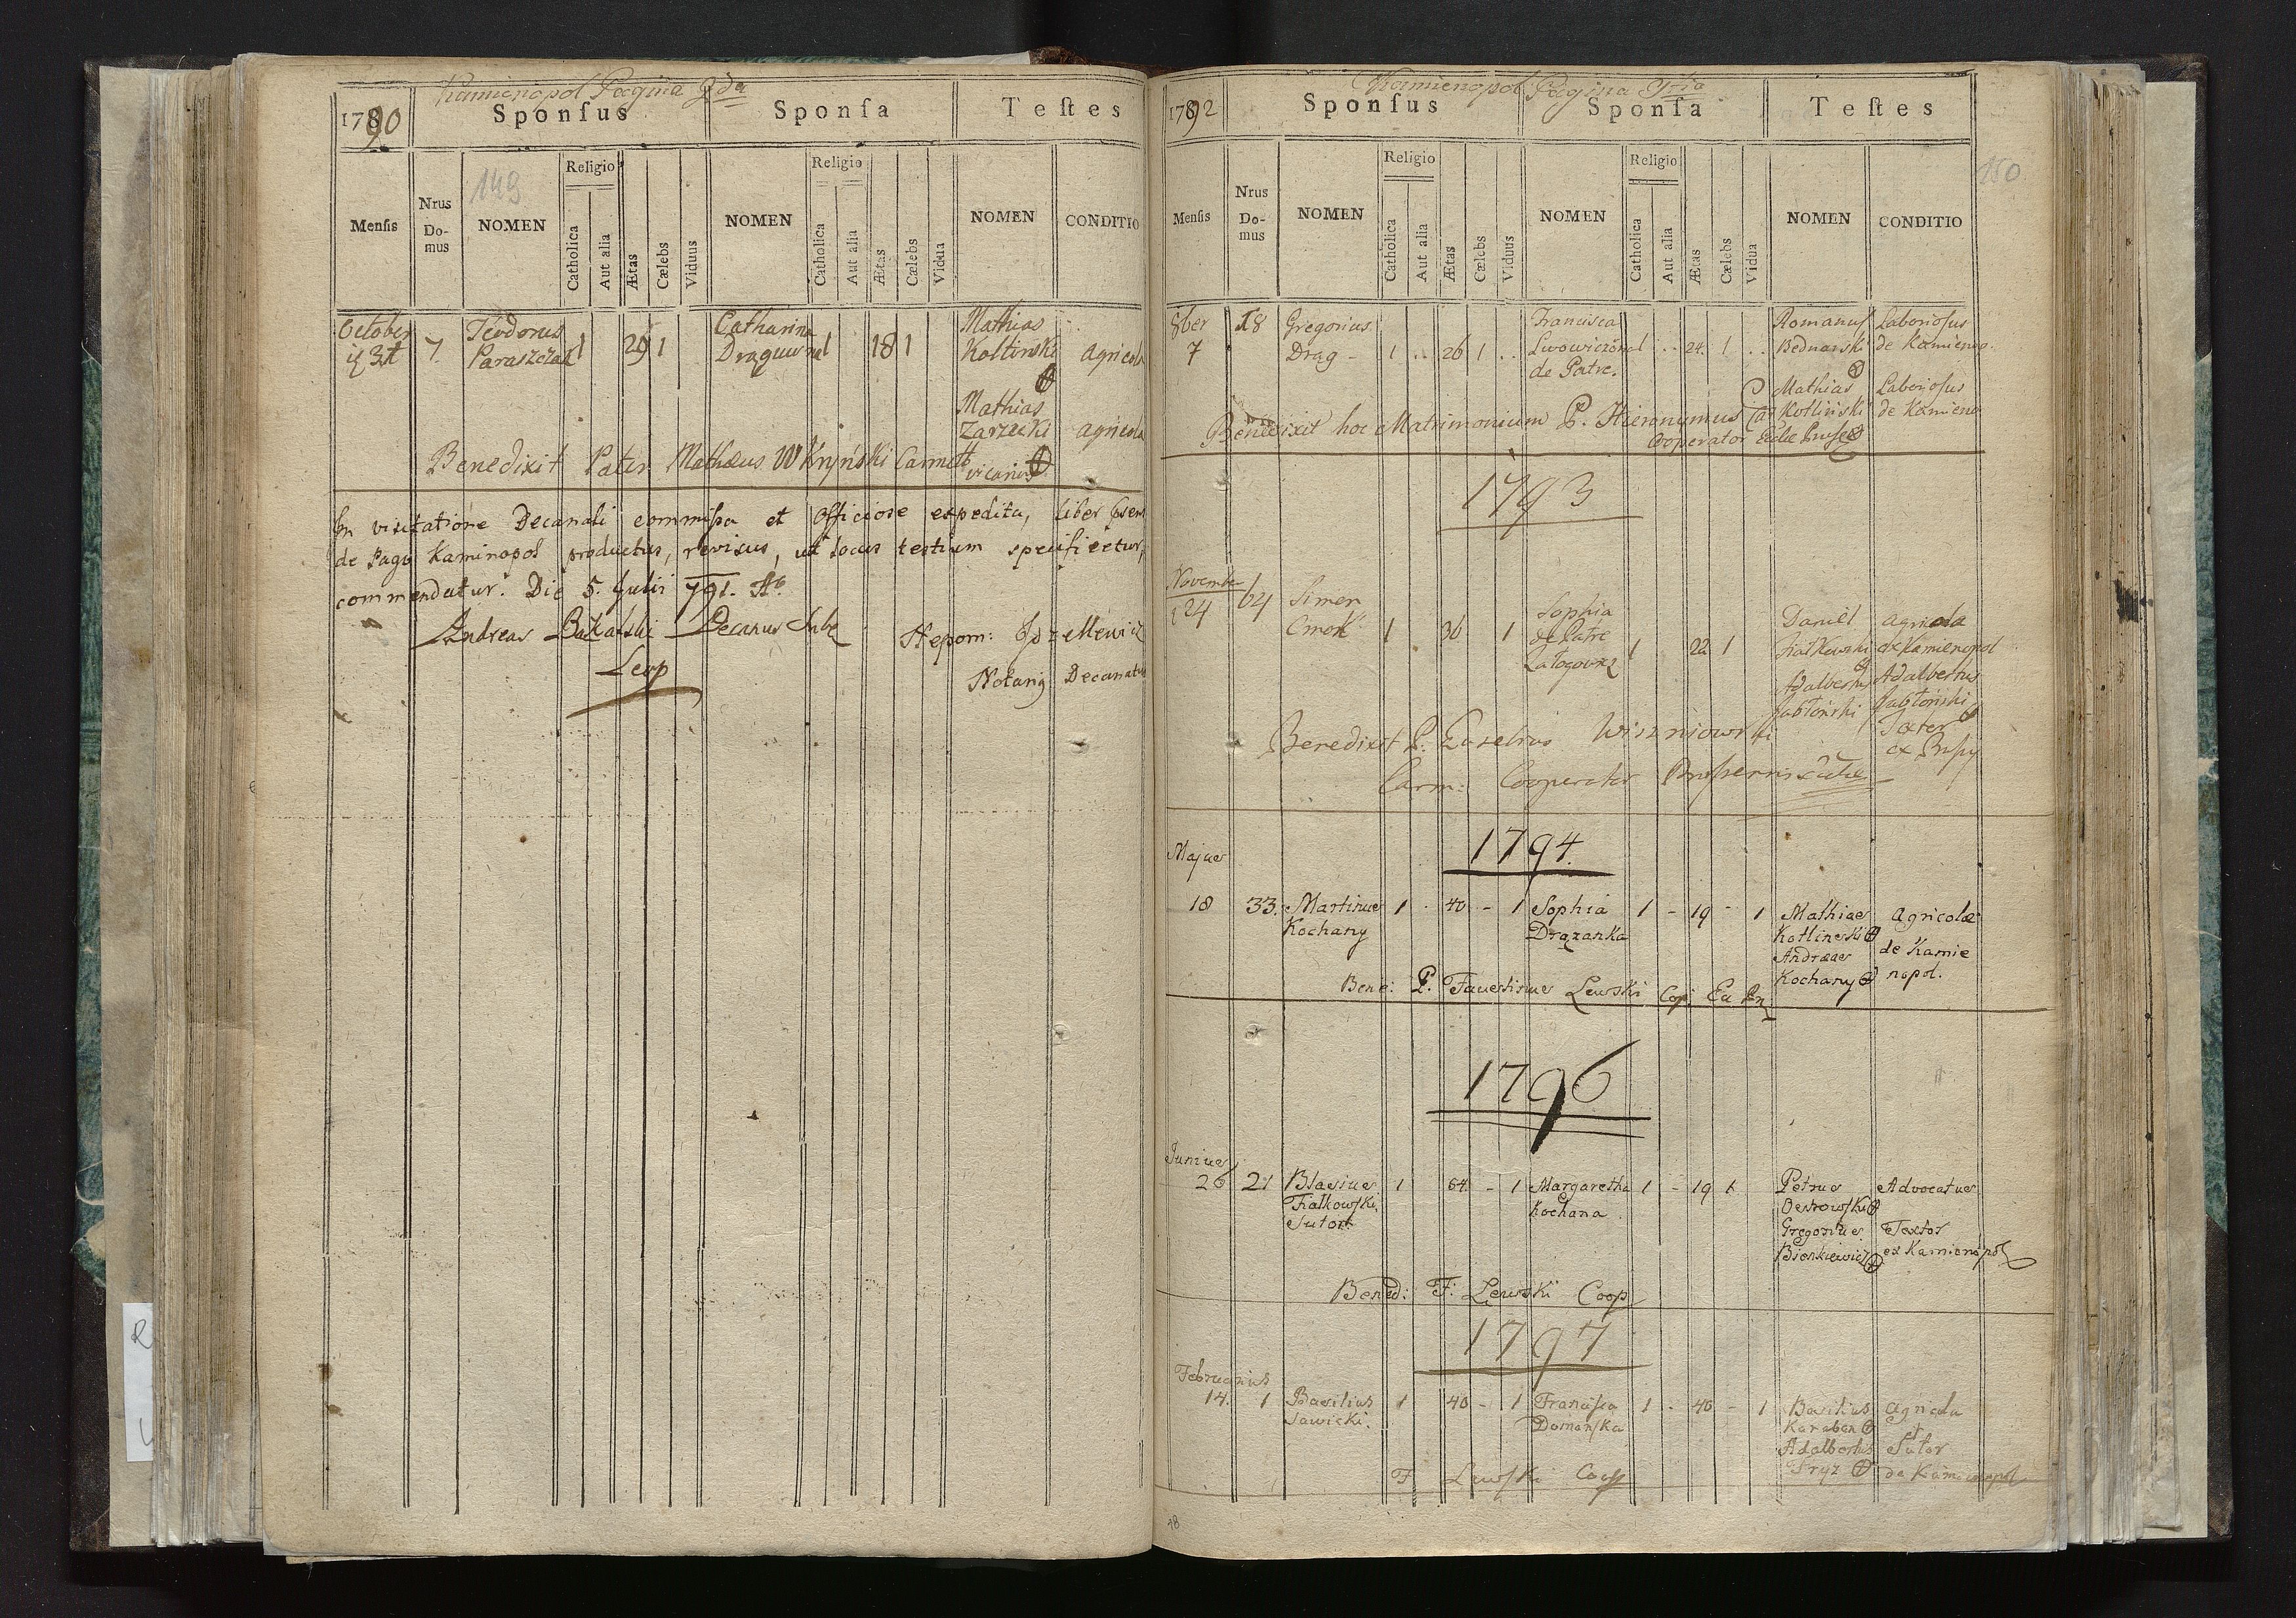 Kamienopol Pagina 2da
1790 Sponſus Sponſa Teſtes
149
Menſis Nrus Do-mus NOMEN Religio Catholica Aut alia Ætas Cœlebs Viduus NOMEN Religio Catholica Aut alia Ætas Cœlebs Vidua NOMEN CONDITIO
October Teodorus Catharina Mathias
31 7. Paraszczak 1 29 1 Draguwna 1 18 1 Kotlinski agricola
Mathias
Zarzecki agricola
Benedixit Pater Mathæus Carmelit
vicarius
In visitatione Decanali commissa et officiose expedita, liber
de Pago Kaminopol productus, revisus, ut locus testium specificetur,
commendatur. Die 5. Julii 791. A
Andreas Decanus
Leop
Nepom:
Notariq Decanatus
Kamienopol Pagina 3tia
1792 Sponſus Sponſa Teſtes
150
Menſis Nrus Do-mus NOMEN Religio Catholica Aut alia Ætas Cœlebs Viduus NOMEN Religio Catholica Aut alia Ætas Cœlebs Vidua NOMEN CONDITIO
8ber 18 Gregorius Francisca Romanus Laboriosus
7 Drag - 1 .. 26 1 .. Lwowiczówna 1 .. 24. 1 .. Bednarski de Kamieno.
de Patre.
Mathias Laboriosus
Kotliński de Kamieno
Benedixit hoc Matrimonium P. Hieronymus
Cooperator
1793
November
24 64 Simon Sophia Daniel agricola
Cmok 1 36 1 de Patre 1 22 1 Fiałkowski ex Kamienopol
Załogowna
Adalbertus Adalbertus
Jabłoński Jabłoński
Textor
Benedixit P. Wiszniowski
Carm: Cooperator
1794.
Majus
18 33. Martinus 1 - 40 - 1 Sophia 1 - 19 - 1 Mathias Agricolæ
Kochany Drązanka Kotlinski
Andreas de Kamie
Kochany nopol.
Bene: P. Faustinus Lewski
1796
Junius
26 21 Blasius 1 64 - 1 Margaretha 1 - 19 1 Petrus Advocatus
Fialkowski Kochana Ostrowski
Sutor Gregorius Textor
ex Kamienopol
Bened: F. Lewski Coop
1797
Februarius
14. 1 Basilius 1 40 - 1 Francisca 1 - 40 - 1 Basilius Agricola
Sawicki. Domanska Karaban
Adalbertus Sutor
de Kamienopol
F Lewski Coop
18